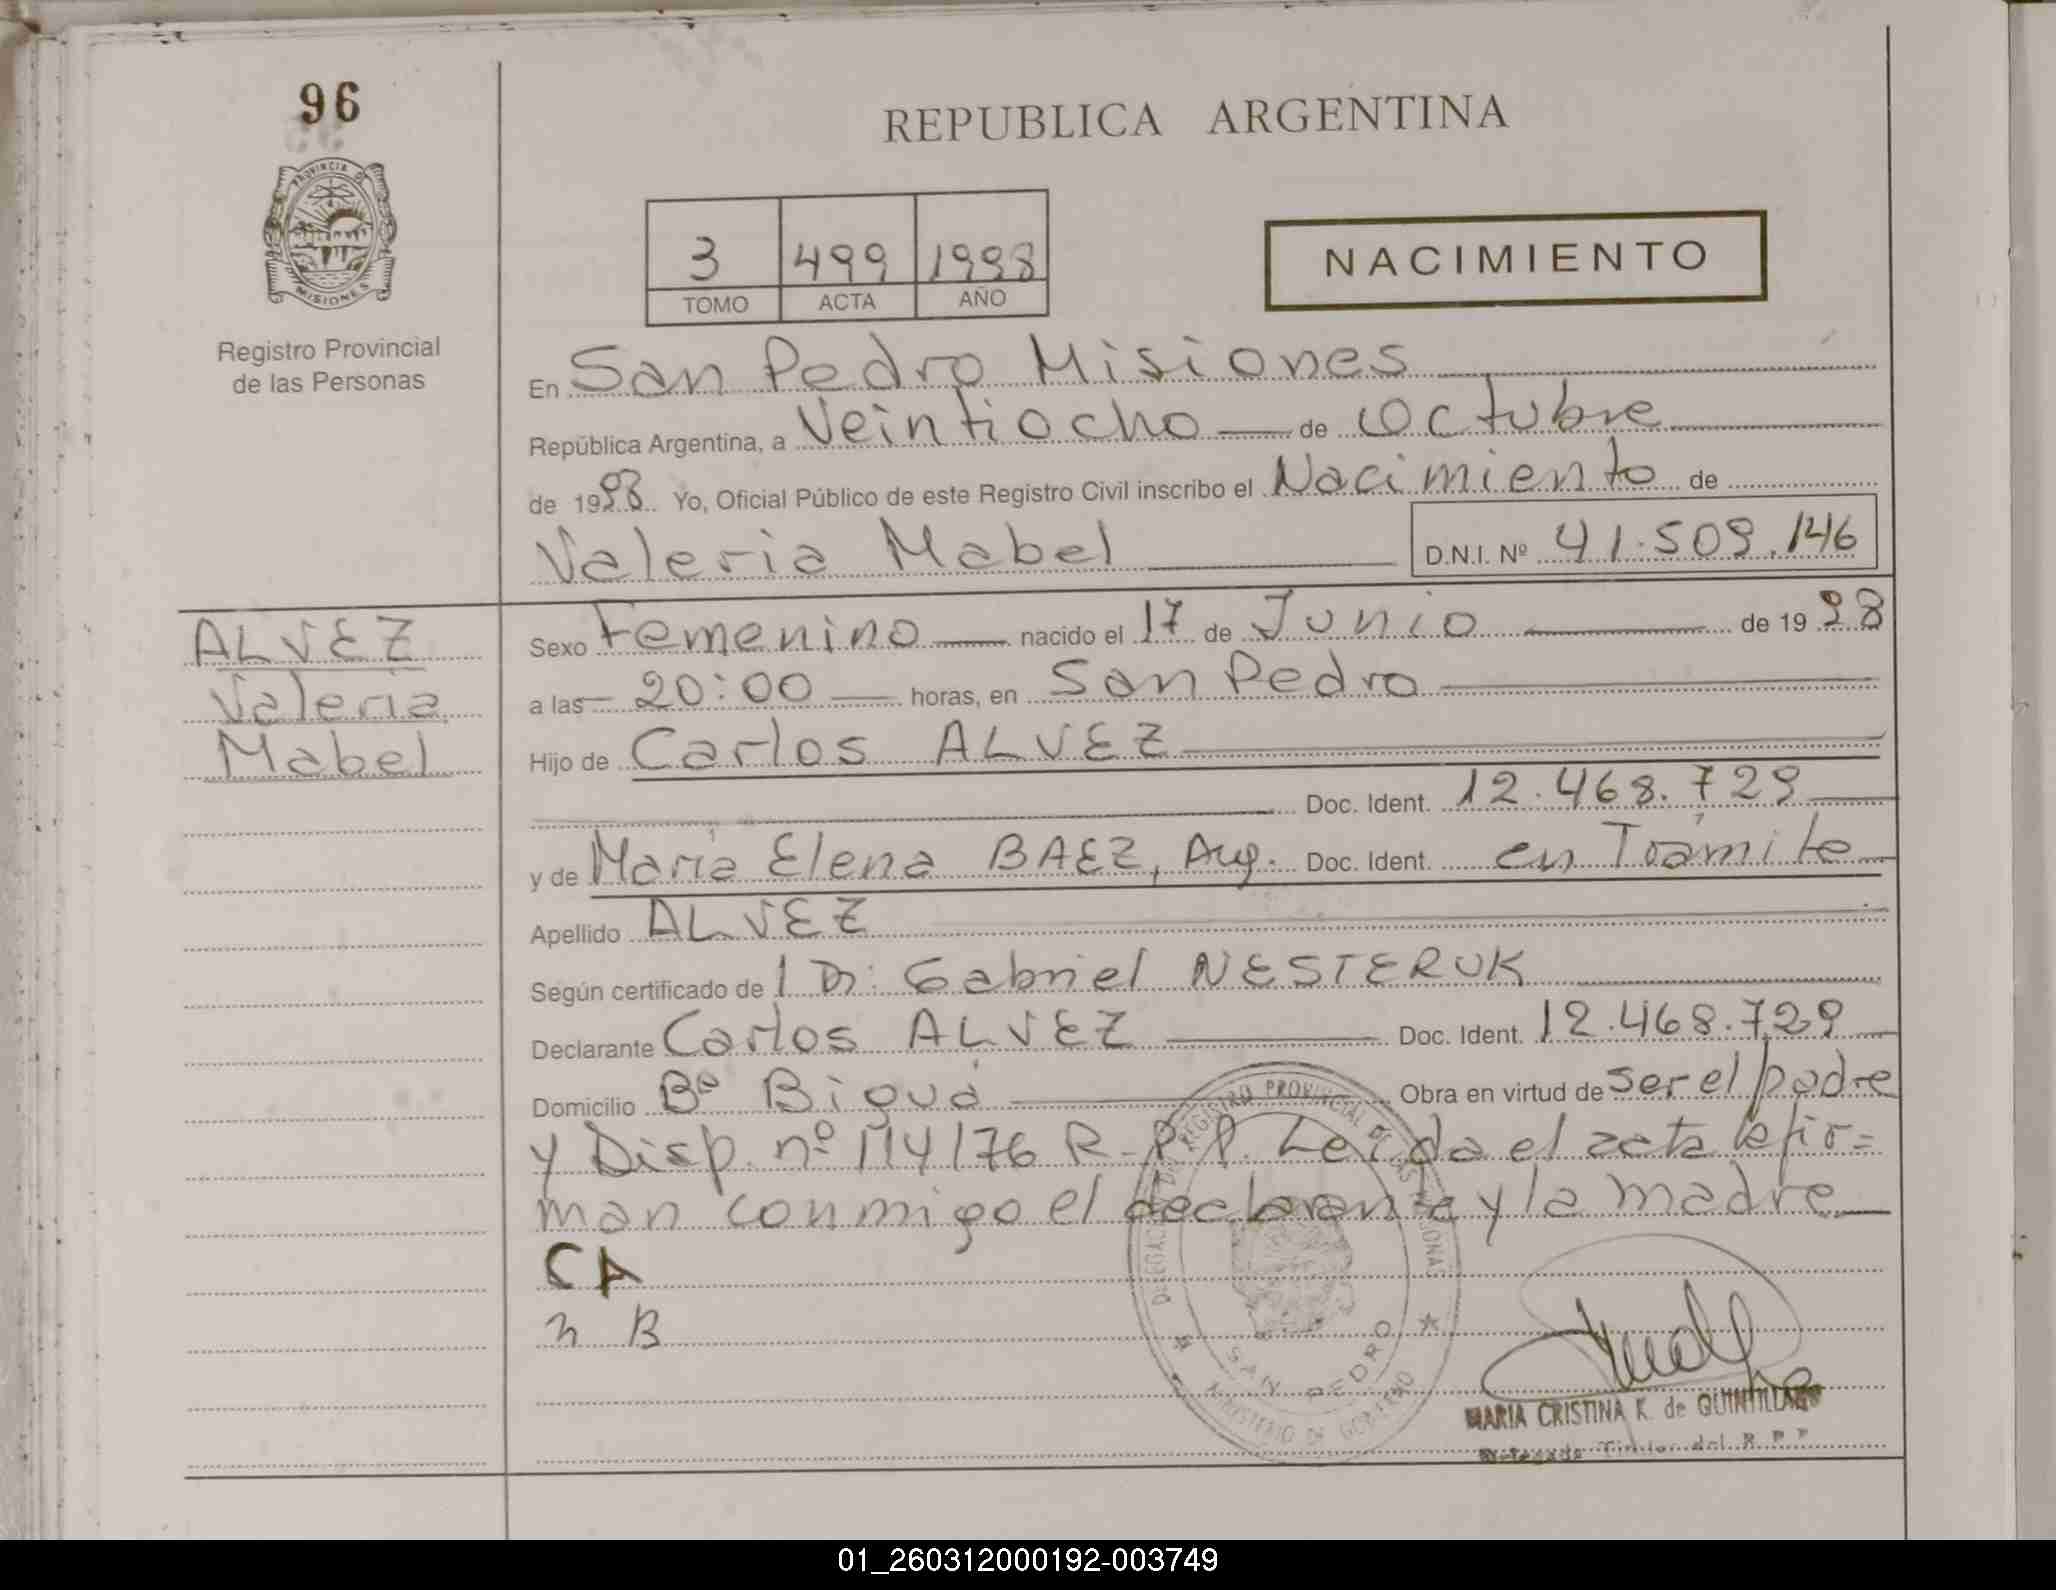 96
REPUBLICA ARGENTINA
PROVINCIA DE
MISIONES
Registro Provincial
de las Personas
3 499 1998
TOMO ACTA AÑO
NACIMIENTO
En San Pedro Misiones
República Argentina, a Veintiocho de Octubre
de 1998 Yo, Oficial Público de este Registro Civil inscribo el Nacimiento de
Valeria Mabel D.N.I. Nº 41.509.146
ALVEZ
Valeria
Mabel
Sexo Femenino nacido el 17 de Junio de 1998
a las 20:00 horas, en San Pedro
Hijo de Carlos ALVEZ
Doc. Ident. 12.468.729
y de María Elena BAEZ, Arg. Doc. Ident. en Trámite
Apellido ALVEZ
Según certificado de Dr. Gabriel NESTERUK
Declarante Carlos ALVEZ Doc. Ident. 12.468.729
Domicilio Bº Biguá Obra en virtud de ser el padre
y Disp. nº 114/76 R.P.P. Leída el acta la fir=
man conmigo el declarante y la madre
C A
B
REGISTRO PROVINCIAL DE LAS PERSONAS
SAN PEDRO
MINISTERIO DE GOBIERNO
MARIA CRISTINA K. de QUINTILLAN
Delegada Titular del R.P.P.
01_260312000192-003749